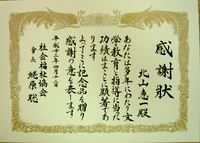 感謝状
北山恵一殿
あなたは多年にわたり文
学教育と指導に当たら
功績はまことに顕著であ
ります
よってここに記念品を贈り
感謝の意を表します
平成十三年四月二十二日
社会福祉協会
会長 姥原聡